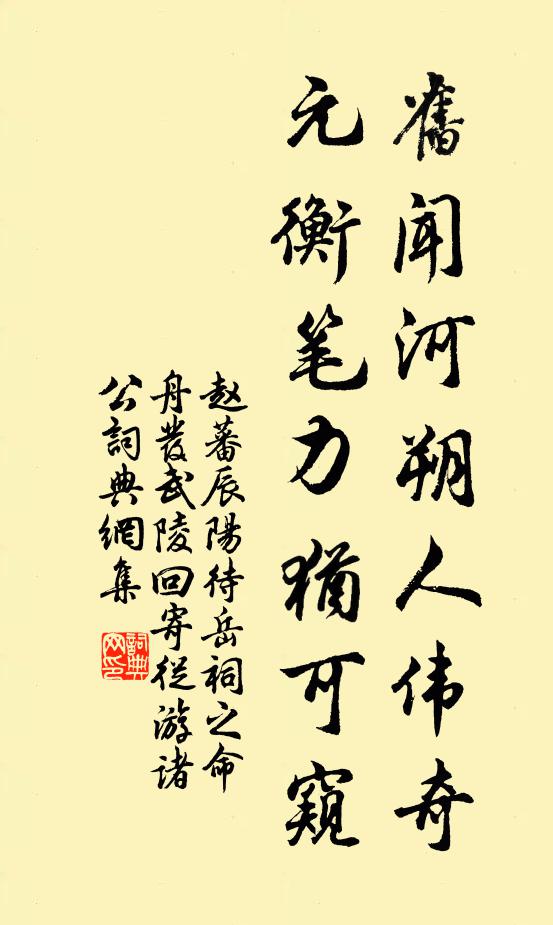 舊闻河朔人伟奇
元衡笔力猶可窺
赵蕃辰陽待岳祠之命
舟發武陵回寄從游諸
公詞典網集
詞典
网印